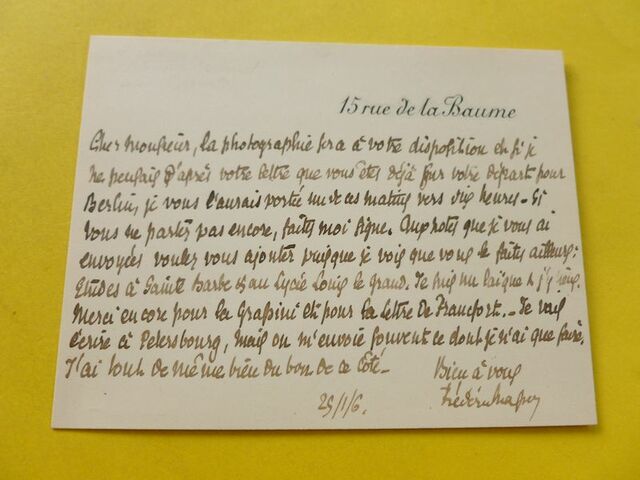 15 rue de la Baume
Cher Monsieur, la photographie sera à votre disposition et si je
ne pensais d'après votre lettre que vous êtes déjà sur votre départ pour
Berlin, je vous l'aurais portée un de ces matins vers dix heures - Si
vous ne partez pas encore, faites moi signe. Aux notes que je vous ai
envoyées voulez vous ajouter puisque je vois que vous le faites ailleurs :
Etudes à Sainte Barbe et au Lycée Louis le grand. Je suis un laïque &
Merci encore pour la Grassini et pour la lettre de Francfort. - Je vais
écrire à Petersbourg, mais on m'envoie souvent ce dont je n'ai que faire.
J'ai tout de même bien du bon de ce côté -
Bien à vous
Frédéric Masson
25/1/6.